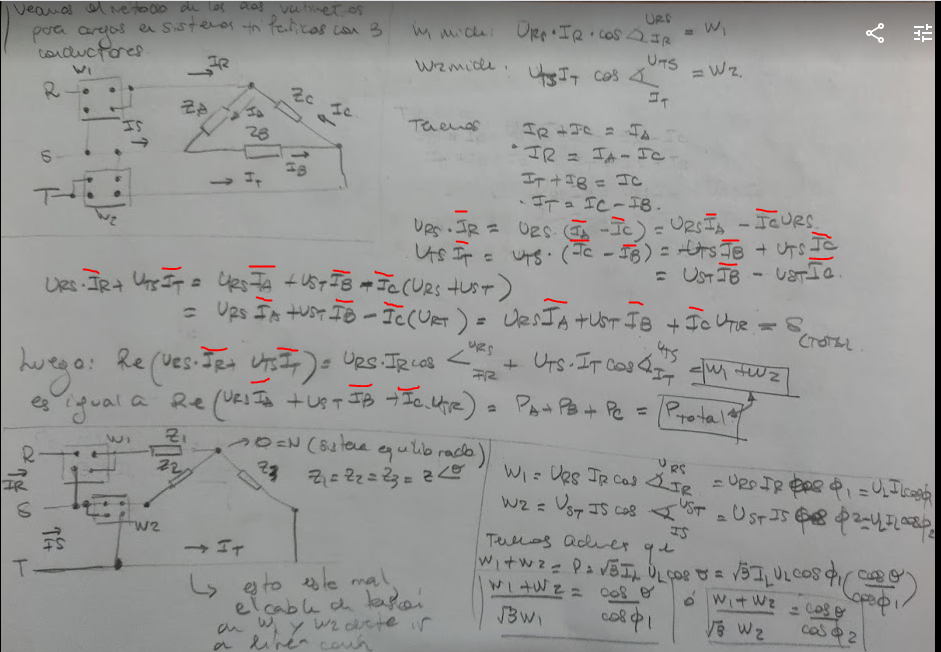 Veamos el método de los dos vatímetros
para cargas en sistemas trifásicos con 3
conductores.
W1
R
IR
ZA
ZC
IA
IC
IS
ZB
S
IB
T
IT
W2
W1 mide: URS·IR·cos ∡ URS IR = W1
W2 mide: UTS IT cos ∡ UTS IT = W2
Tenemos
IR + IC = IA
· IR = IA - IC
IT + IB = IC
· IT = IC - IB.
URS·I̅R̅ = URS·(I̅A̅ - I̅C̅) = URS I̅A̅ - I̅C̅ URS
UTS I̅T̅ = UTS·(I̅C̅ - I̅B̅) = -UTS I̅B̅ + UTS I̅C̅
= UST I̅B̅ - UST I̅C̅.
URS·I̅R̅ + UTS I̅T̅ = URS I̅A̅ + UST I̅B̅ - I̅C̅ (URS + UST)
= URS I̅A̅ + UST I̅B̅ - I̅C̅ (URT) = URS I̅A̅ + UST I̅B̅ + I̅C̅ UTR = S (TOTAL
Luego: Re (URS·I̅R̅ + UTS I̅T̅) = URS·IR cos ∡ URS IR + UTS·IT cos ∡ UTS IT = W1 + W2
es igual a Re (URS I̅A̅ + UST I̅B̅ + I̅C̅·UTR) = PA + PB + PC = PTotal
R
W1
Z1
→ O=N (Sistema equilibrado)
Z2
Z3
Z1 = Z2 = Z3 = Z∠θ
IR
S
W2
IS
T
→ IT
↳ esto este mal,
el cable de
W1 y W2
a línea
W1 = URS IR cos ∡ URS IR = URS IR cos φ1 = UL IL cos φ1
W2 = UST IS cos ∡ UST IS = UST IS cos φ2 = UL IL cos φ2
Tenemos además que
W1 + W2 = P = √3 IL UL cos θ = √3 IL UL cos φ1 (cos θ / cos φ1)
W1 + W2 / √3 W1 = cos θ / cos φ1
ó
W1 + W2 / √3 W2 = cos θ / cos φ2